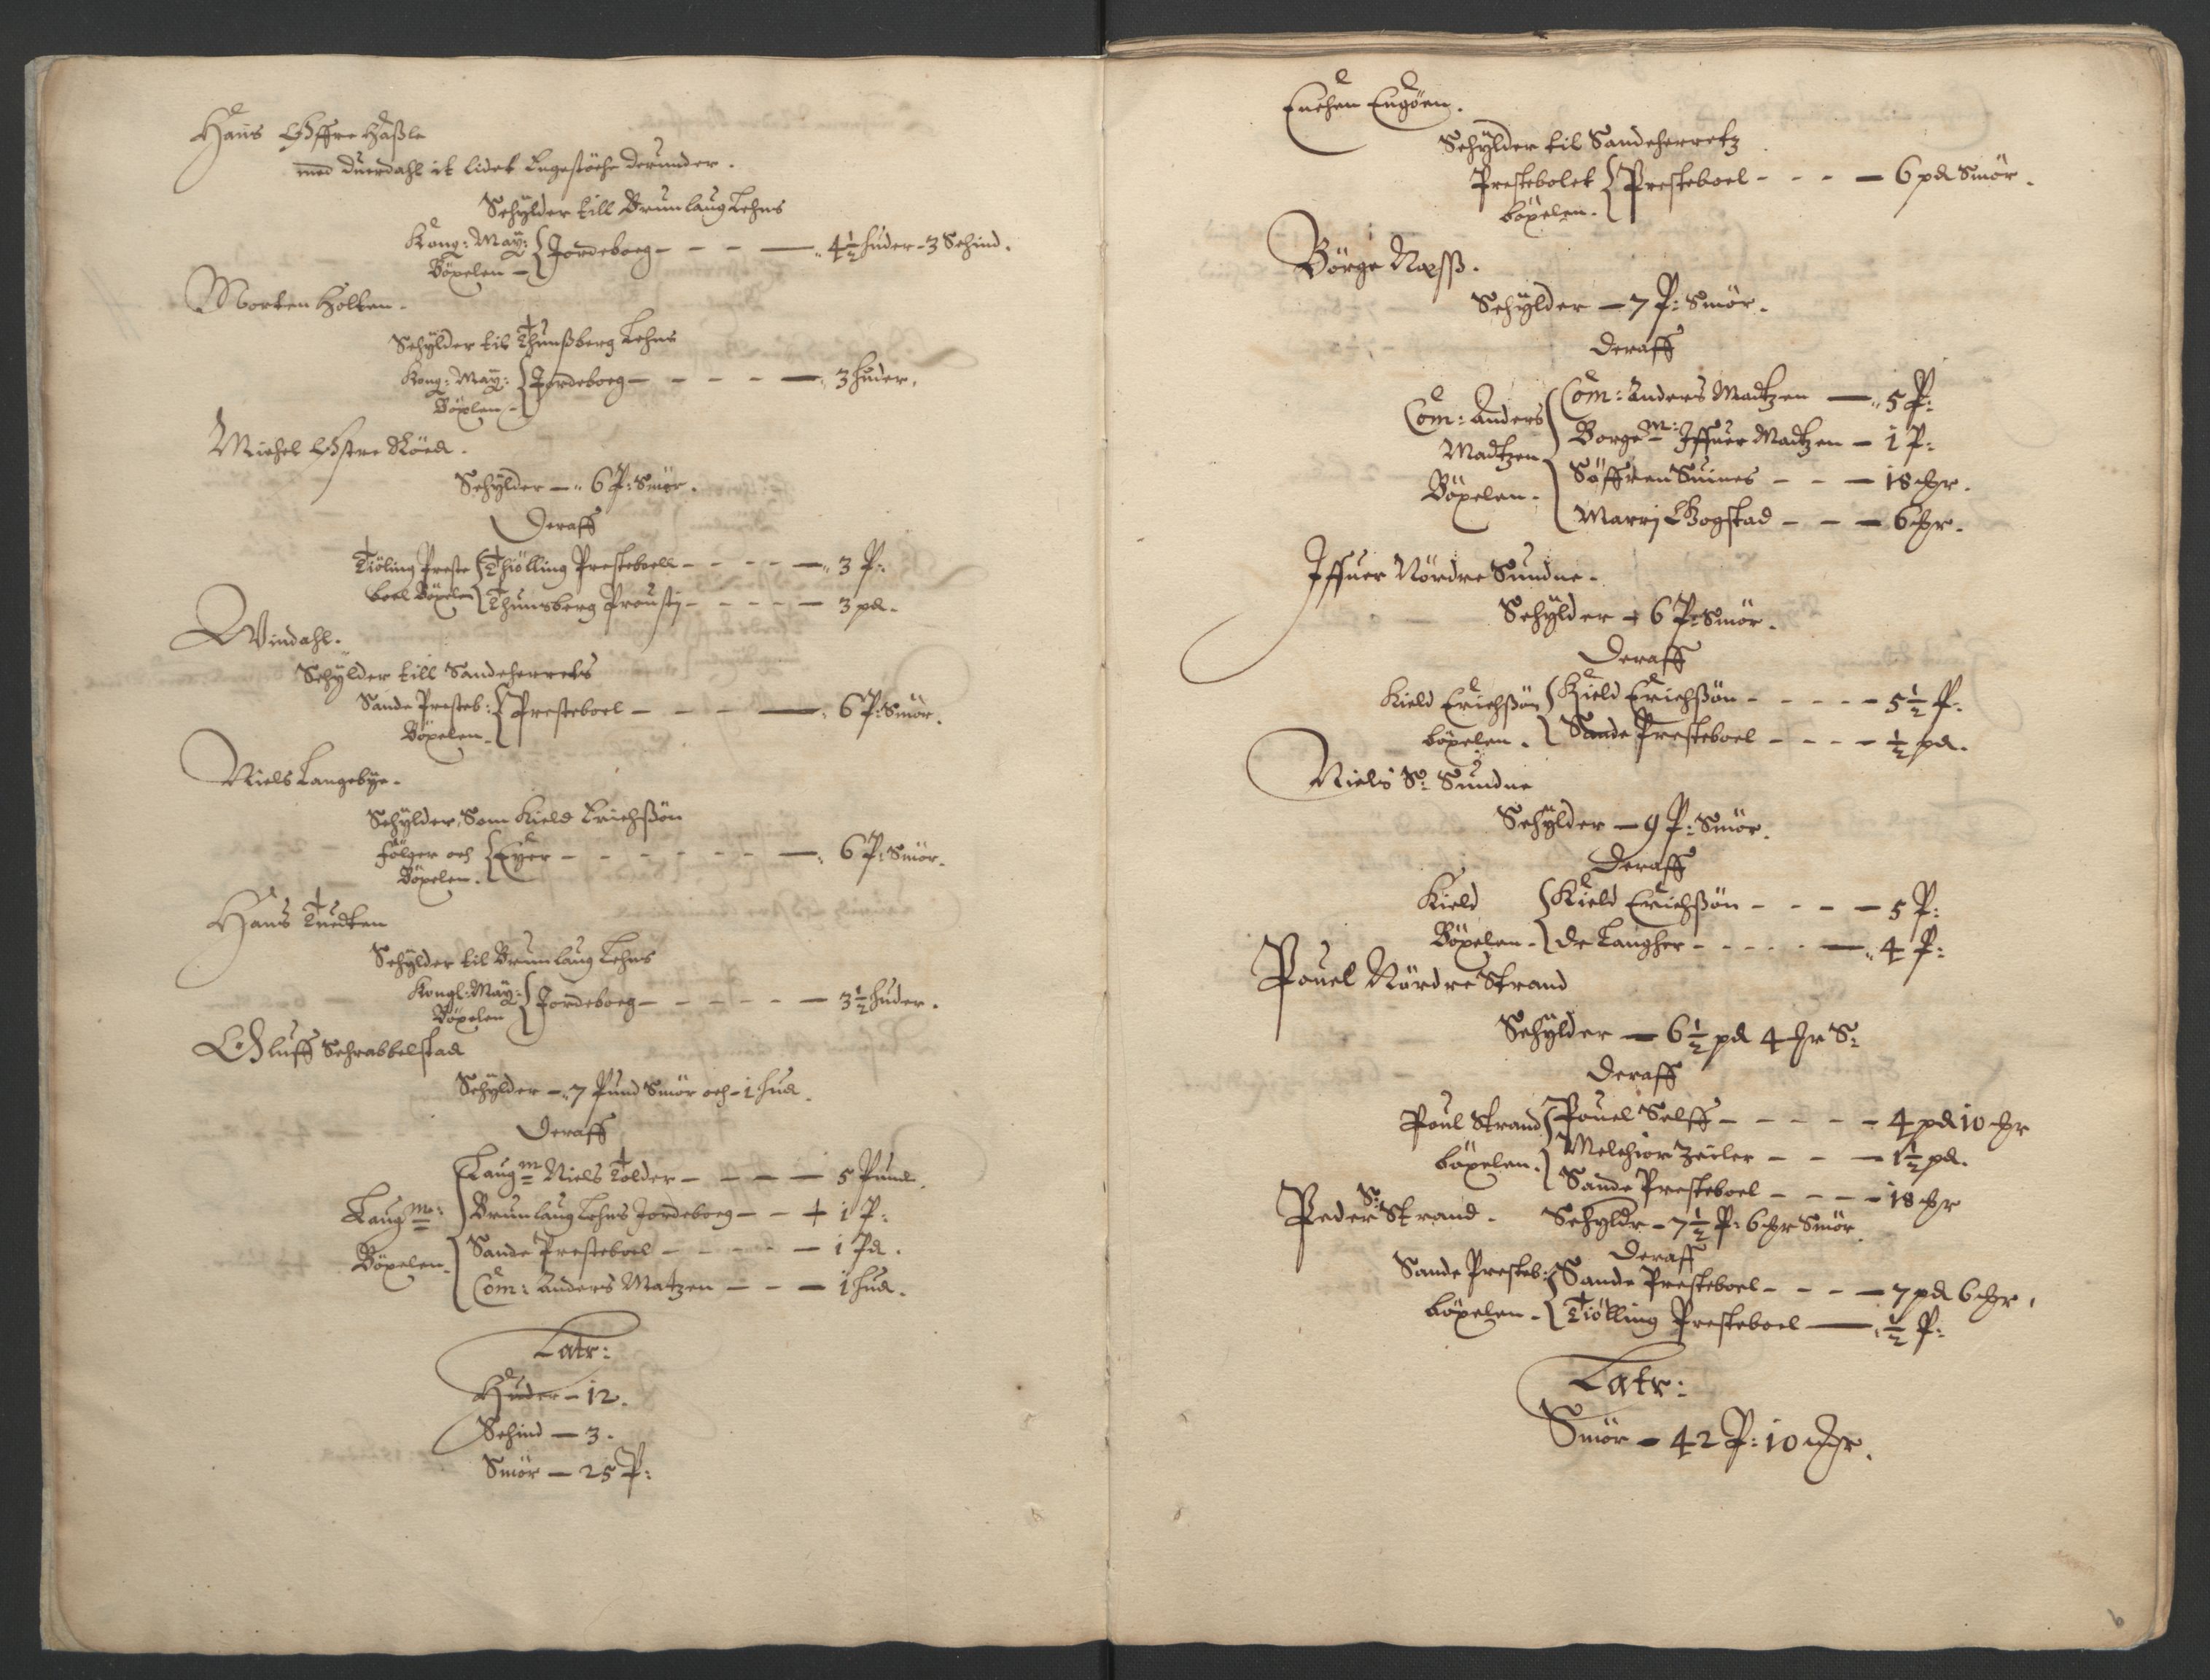 Hans Øffre Haßle
med duerdahl it lidet Engestöche derunder.
Schÿlder till Brunlaug Lehns
Kong: May: Jordeboeg - - - — 4½ huder - 3 Schind.
Böxelen -
Morten Holten.
Schÿlder til Thunßberg Lehns
Kong: May: Jordeboeg - - - - — 3 huder.
Böxlen -
Michel Østre Röed.
Schÿlder — 6 P: Smör.
Deraff
Tiöling Preste Thiölling Presteboell - - - - — 3 P:
boel Böxelen Thunsberg Prousti - - - - — 3 pd.
Windahl.
Schÿlder till Sandeherrets
Sande Presteb: Presteboel - - - — 6 P: Smör.
Böxelen.
Niels Langebye.
Schÿlder, Som Kield Erichßön
følger och Eyer - - - - - - — 6 P: Smör.
Böxelen.
Hans Tuedten
Schÿlder til Brunlaug Lehns
Kongl: May: Jordeboeg - - - - — 3½ huder.
Böxelen
Oluff Schrabbelstad
Schÿlder — 7 Pund Smör och - 1 hud.
Deraff
Laugm Niels Tolder - - - — 5 Pund.
Laugm: Brunlaug Lehns Jordeboeg - - + 1 P:
Sande Presteboel - - - - — 1 Pd.
Böxelen.
Com: Anders Matzen - - — 1 hud.
Latr:
Huder - 12.
Schind — 3.
Smör — 25 P:
Enchen Engöen.
Schÿlder til Sandeherretz
Prestebolet Presteboel - - - — 6 pd Smör.
böxelen.
Börge Næsß.
Schÿlder — 7 P: Smör.
Deraff
Com: Anders Com: Anders Madtzen — 5 P:
Madtzen Borgem: Iffuer Madtzen - 1 P:
Böxelen. Söffren Suines - - — 18 chr.
Marrj Bogstad - - — 6 chr.
Iffuer Nördre Sundne.
Schÿlder + 6 P: Smör.
Deraff
Kield Erichßön Kield Erichßön - - - - - 5½ P:
böxelen. Sande Presteboel - - - - ½ pd.
Niels Sø: Sundne
Schÿlder — 9 P: Smör.
Deraff
Kield Kield Erichßön - - - — 5 P:
Böxelen. De Langher - - - - - — 4 P:
Pouel Nördre Strand
Schÿlder — 6½ pd 4 chr S:
Deraff
Poul Strand Pouel Selff - - - - - 4 pd 10 chr
böxelen. Melchior Zeiler - - — 1½ pd.
Sande Presteboel - - - - 18 chr
Peder Sø: Strand. Schÿldr - 7½ P: 6 chr Smör.
Deraff
Sande Presteb: Sande Presteboel - - - — 7 pd 6 chr.
böxelen. Tiölling Presteboel — ½ P:
Latr:
Smör - 42 P: 10 chr.
6